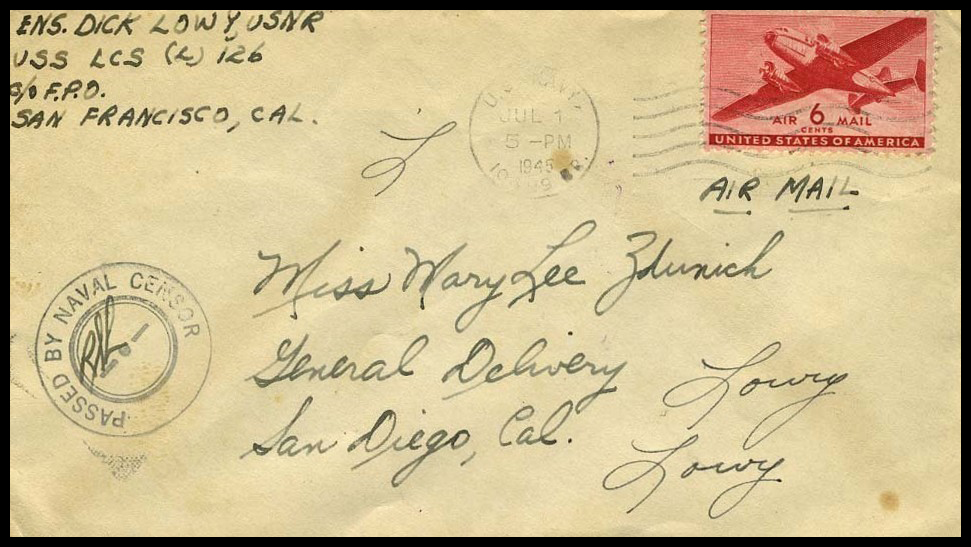 ENS. DICK LOWY, USNR
USS LCS (L) 126
c/o F.P.O.
SAN FRANCISCO, CAL.
U.S. NAVY
JUL 1
5 - PM
1945
AIR 6 MAIL
CENTS
UNITED STATES OF AMERICA
AIR MAIL
L
Miss Mary Lee Zdunich
General Delivery
San Diego, Cal.
Lowy
Lowy
PASSED BY NAVAL CENSOR